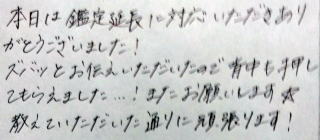 本日は鑑定延長に対応いただきあり
がとうございました!
ズバッとお伝えいただいたので背中も押し
てもらえました…!またお願いします☆
教えていただいた通りに頑張ります!